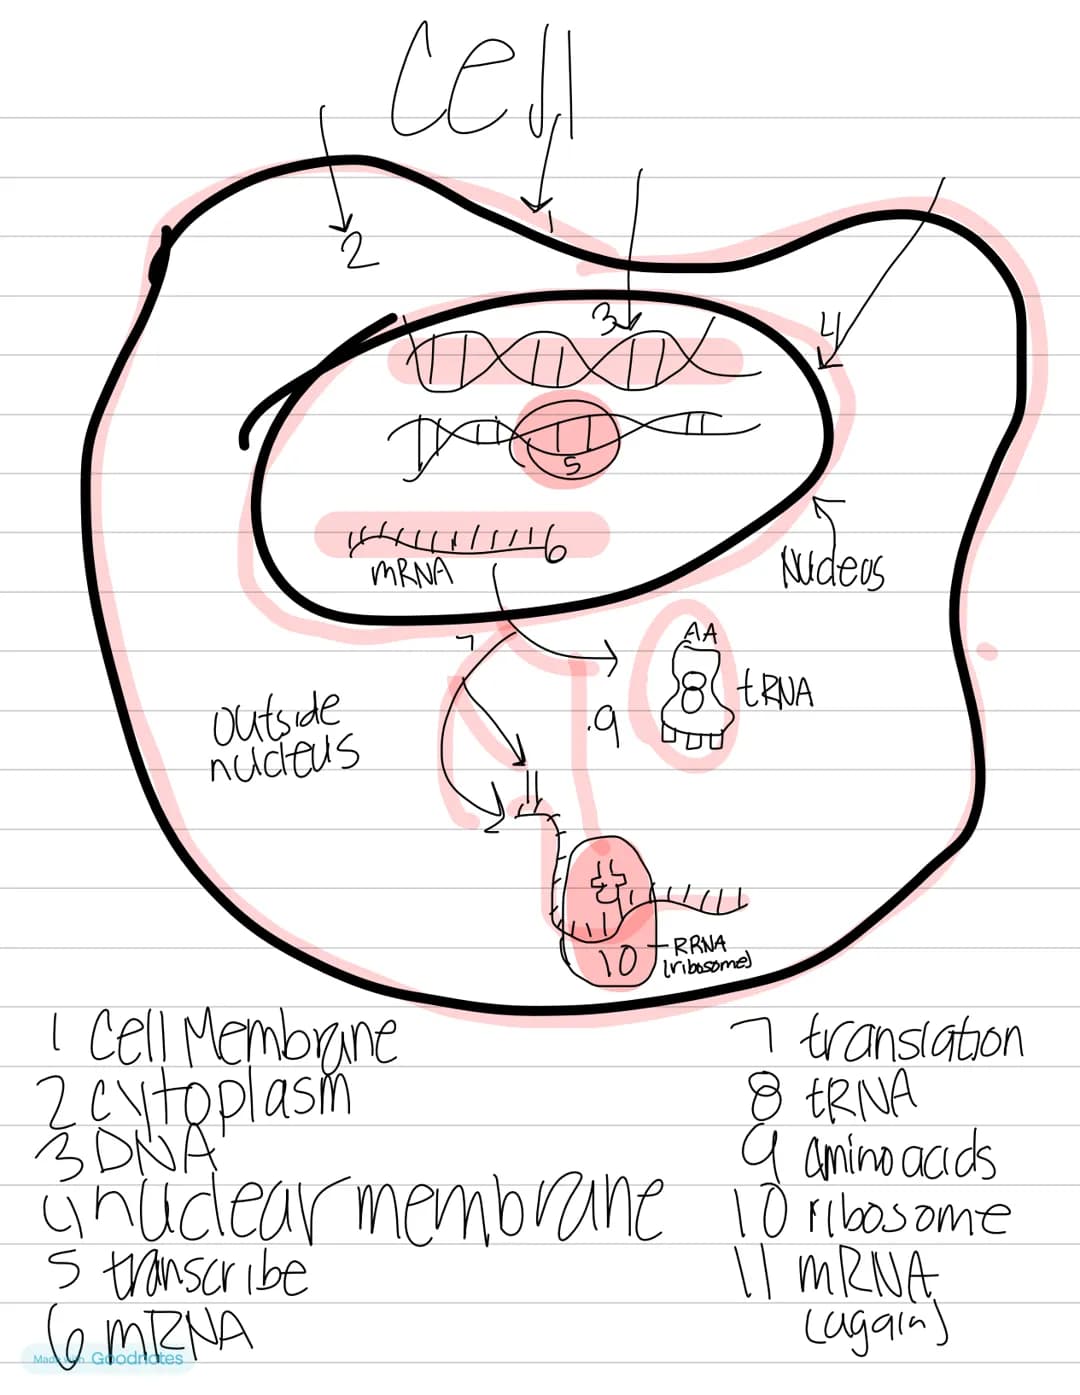 Cell
1
2
3
4
5
6
mRNA
Nucleos
7
AA
8
tRNA
.9
outside
nucleus
11
10
RRNA
(ribosome)
1 Cell Membrane
2 cytoplasm
3 DNA
4 nuclear membrane
5 transcribe
6 mRNA
7 translation
8 tRNA
9 amino acids
10 ribosome
11 mRNA
(again)
Made with Goodnotes